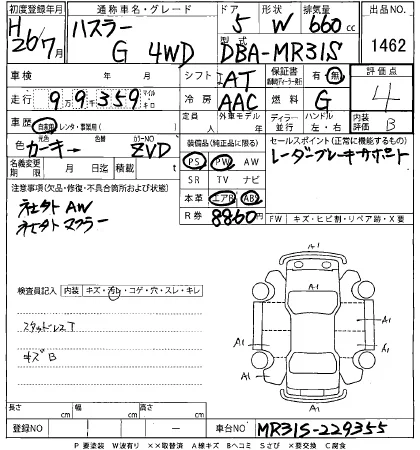 初度登録年月 通称車名・グレード ドア 形状 排気量 出品NO
H26/7月 ハスラー G 4WD 5 W 660cc 1462
型式 DBA-MR31S
車検 年 月 シフト IAT 保証書 有・無 評価点
走行 9万9千359 マイル キロ 冷房 AAC 燃料 G 4
車歴 自家用・レンタ・事業用( ) 定員 人 外車モデル 年 ディーラー・並行 ハンドル 左・右 内装評価 B
色 カーキ→ 色替 カラーNO ZVD 装備品(純正品に限る) セールスポイント(正常に機能するもの)
PS PW AW レーダーブレーキサポート
名義変更期限 月 日迄 積載 t SR TV ナビ
注意事項(欠品・修復・不具合箇所および状態) 本革 エアB AB
社外 AW R券 8860円 FW キズ・ヒビ割・リペア跡・X要
社外 マフラー
検査員記入 内装 キズ・汚れ・コゲ・穴・スレ・キレ
スタッドレスT
キズB
A1
A1 A1
A1 A1
A1 A1
A1
長さ cm 幅 cm 高さ cm
登録NO 車台NO MR31S-229355
P 要塗装 W波有り ××取替済 A線キズ Bヘコミ Sさび ×要交換 C腐食